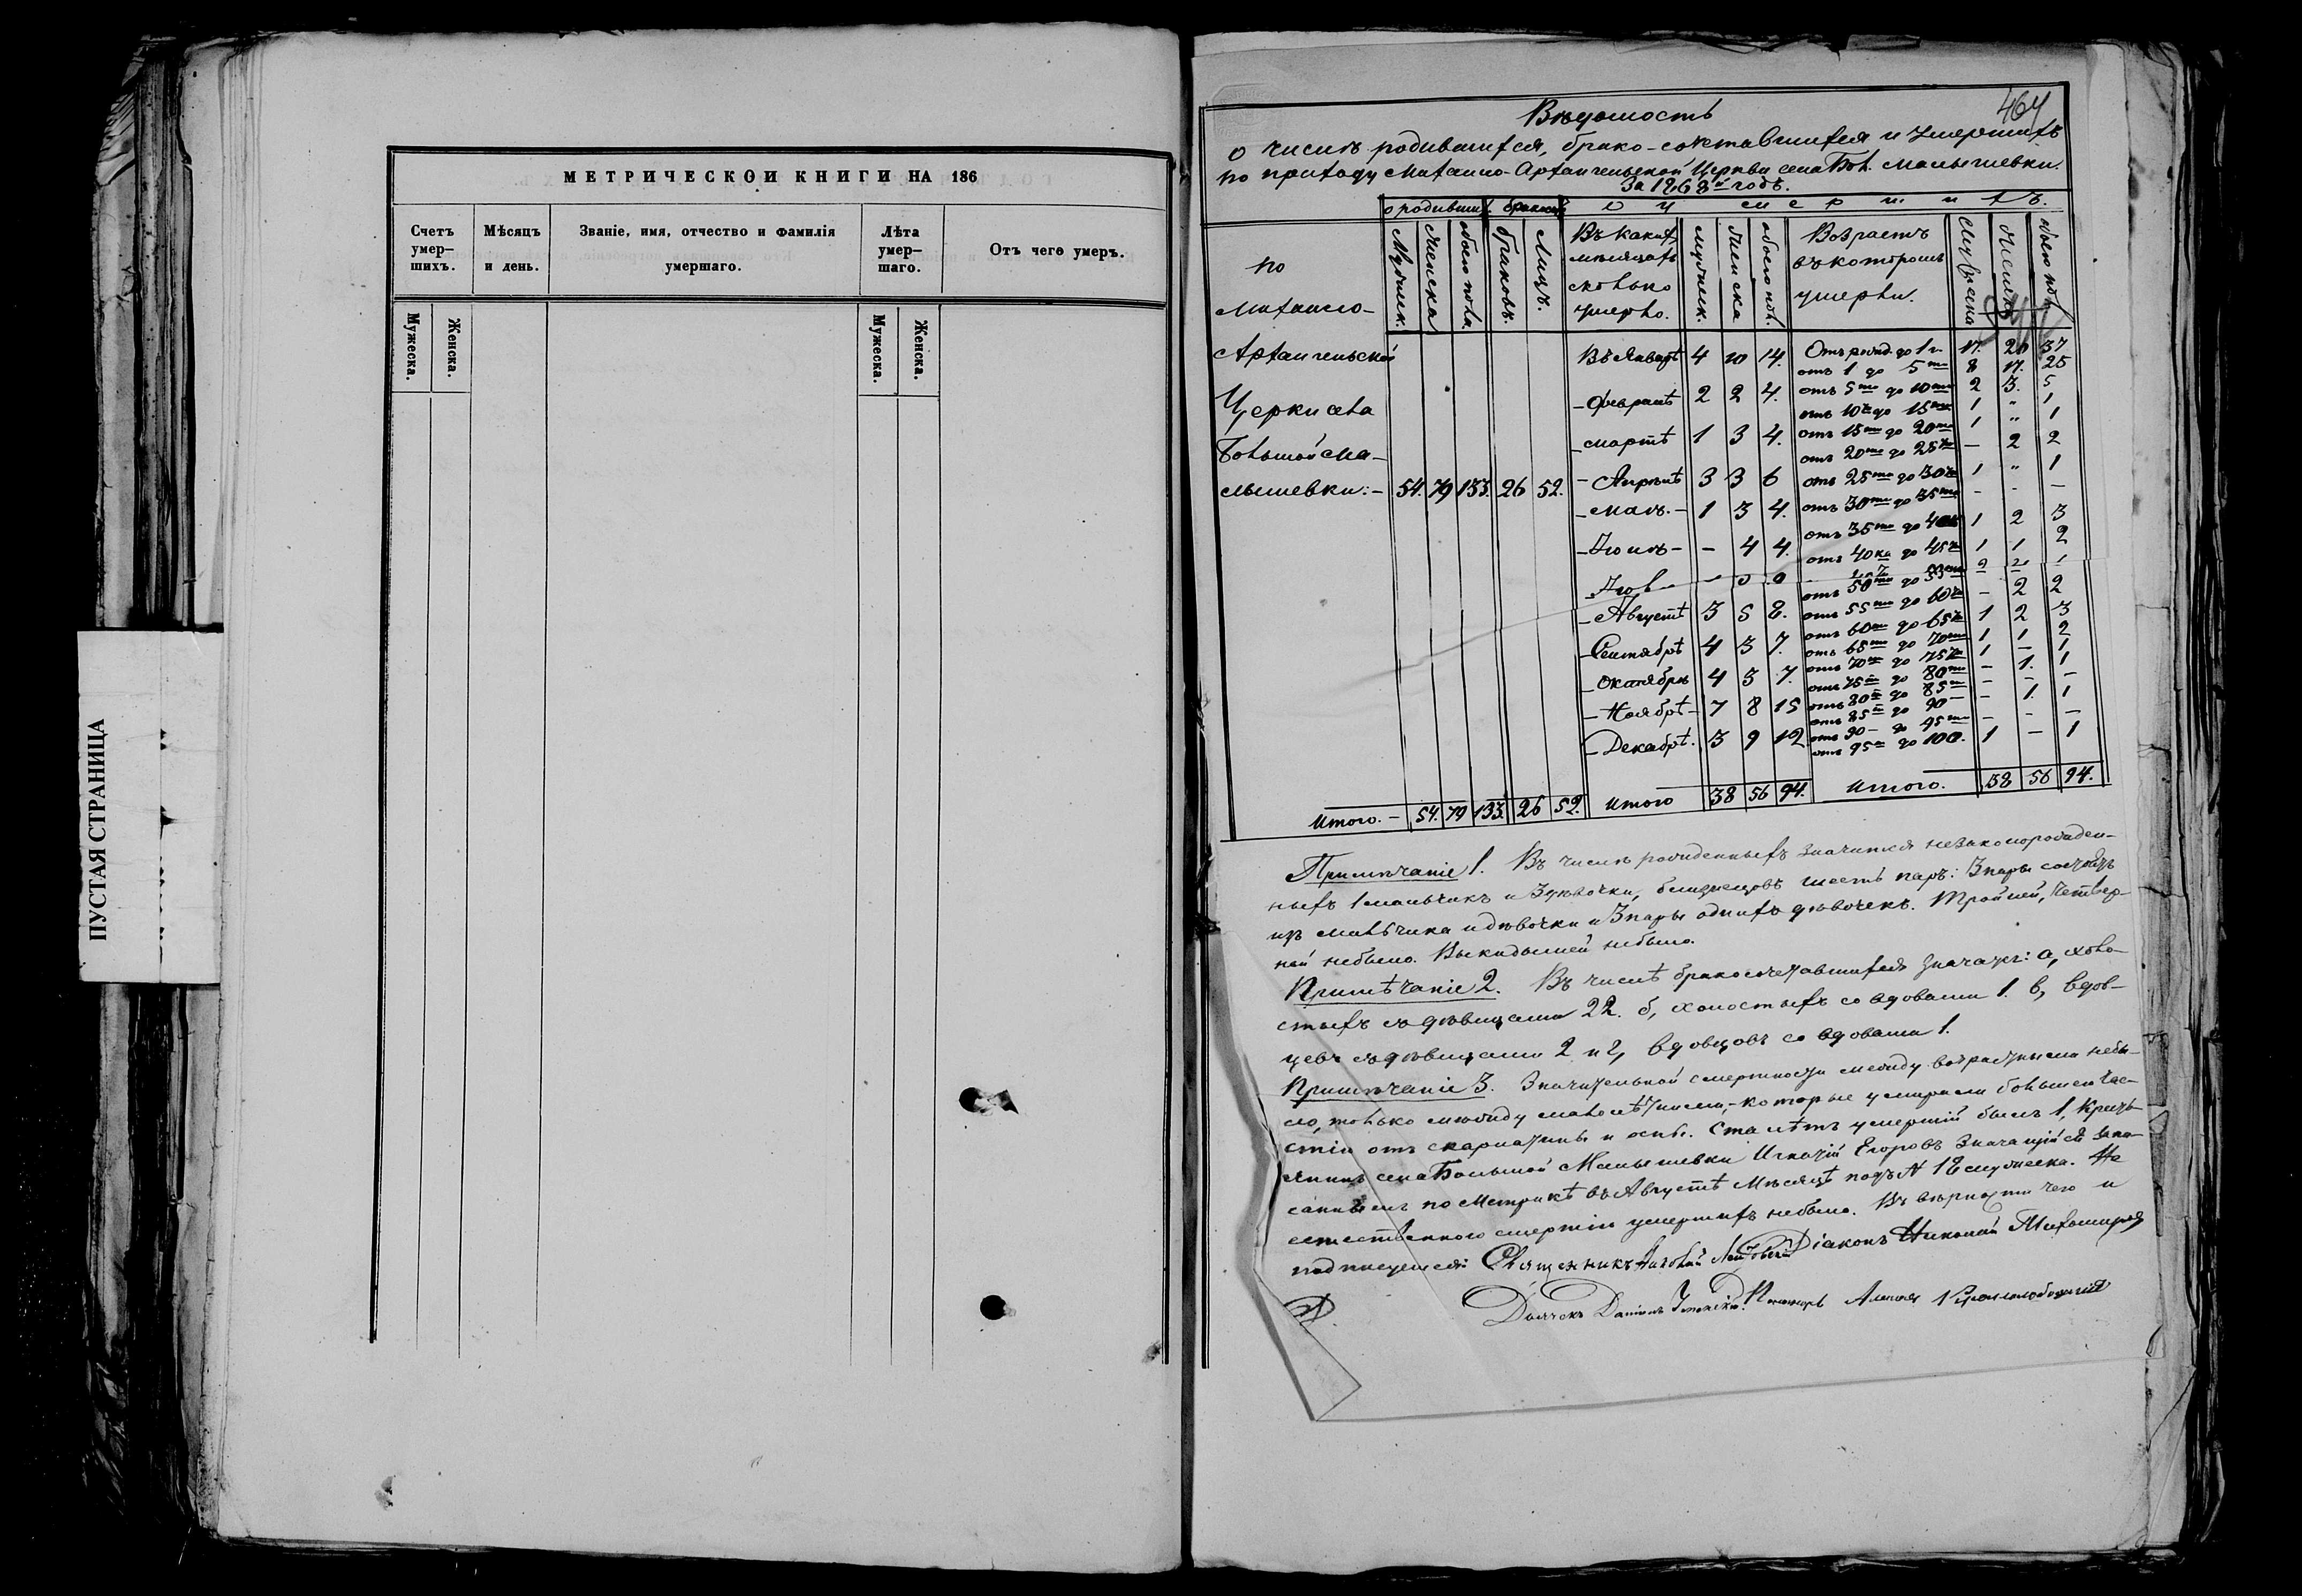 ПУСТАЯ СТРАНИЦА
МЕТРИЧЕСКОИ КНИГИ НА 186
Счетъ умер-шихъ.
Мѣсяцъ и день.
Званіе, имя, отчество и фамилія умершаго.
Лѣта умер-шаго.
Отъ чего умеръ.
Мужеска.
Женска.
Мужеска.
Женска.
464
Вѣдомость
о числѣ родившихся, брако-сочетавшихся и умершихъ
по приходу Михаило-Архангельской Церкви села Бол. Малышевки.
За 1868й годъ.
о родивших. браков. о умершихъ.
по Михаило-
Архангельской
Церкви села
Большой Ма-
лышевки:-
Мужеск.
Женска
обоего пола.
браковъ.
Лицъ.
Въ какихъ
мѣсяцахъ
сколько
умерло.
мужеск.
женска
обоего пол.
Возрастъ
въ которомъ
умерли.
Мужеска
Женска
обоего пол.
54. 79 133. 26 52.
Въ Январѣ 4 10 14.
- Февралѣ 2 2 4.
- Мартѣ 1 3 4.
- Апрѣлѣ 3 3 6
- Маѣ. - 1 3 4.
- Іюнѣ - - 4 4.
- Августѣ 3 5 8.
- Сентябрѣ 4 3 7.
- Октябрѣ 4 3 7.
- Ноябрѣ - 7 8 15
- Декабрѣ. 3 9 12
Отъ рожд. до 1 г. 17. 20 37
отъ 1 до 5ти 8 17. 25
отъ 5ти до 10ти 2 3. 5
отъ 10ти до 15ти 1 " 1
отъ 15ти до 20ти 1 " 1
отъ 20ти до 25ти - 2 2
отъ 25ти до 30ти 1 " 1
отъ 30ти до 35ти - - -
отъ 35ти до 40ка 1 2 3
отъ 40ка до 45ти 1 1 2
отъ 50ти до 55ти
отъ 55ти до 60ти - 2 2
отъ 60ти до 65ти 1 2 3
отъ 65ти до 70ти 1 1 2
отъ 70ти до 75ти 1 - 1
отъ 75ти до 80ти - 1. 1
отъ 80ти до 85ти - - -
отъ 85ти до 90 - - 1. 1
отъ 90 - до 95ти - - -
отъ 95ти до 100. 1 - 1
Итого. - 54. 79 133. 26 52. Итого 38 56 94. Итого. 38 56 94.
Примѣчаніе 1. Въ числѣ рожденныхъ значится незаконорожден-
ныхъ 1 мальчикъ и 3 дѣвочки, близнецовъ шесть паръ: 3 пары состоятъ
изъ мальчика и дѣвочки и 3 пары однихъ дѣвочекъ. Тройней, четвер-
ней небыло. Выкидышей небыло.
Примѣчаніе 2. Въ числѣ бракосочетавшихся значатъ: а, холо-
стыхъ съ дѣвицами 22. б, холостыхъ со вдовами 1. в, вдов-
цевъ съ дѣвицами 2 и г, вдовцовъ со вдовами 1.
Примѣчаніе 3. Значительной смертности между возрастными небы-
ло, только между малолѣтними, - которые умирали большею час-
тію отъ скарлатины и оспы. Ста лѣтъ умершій былъ 1, Кресть-
янинъ села Большой Малышевки Игнатій Егоровъ значащійся запи-
саннымъ по Метрикѣ въ Августѣ Мѣсяцѣ подъ N 18 мужеска. Не
естественною смертію умершихъ небыло. Въ вѣрности чего и
подписуемся: Священникъ Діаконъ Николай Тихомировъ
Дьячекъ Даніилъ Пономарь Алексей